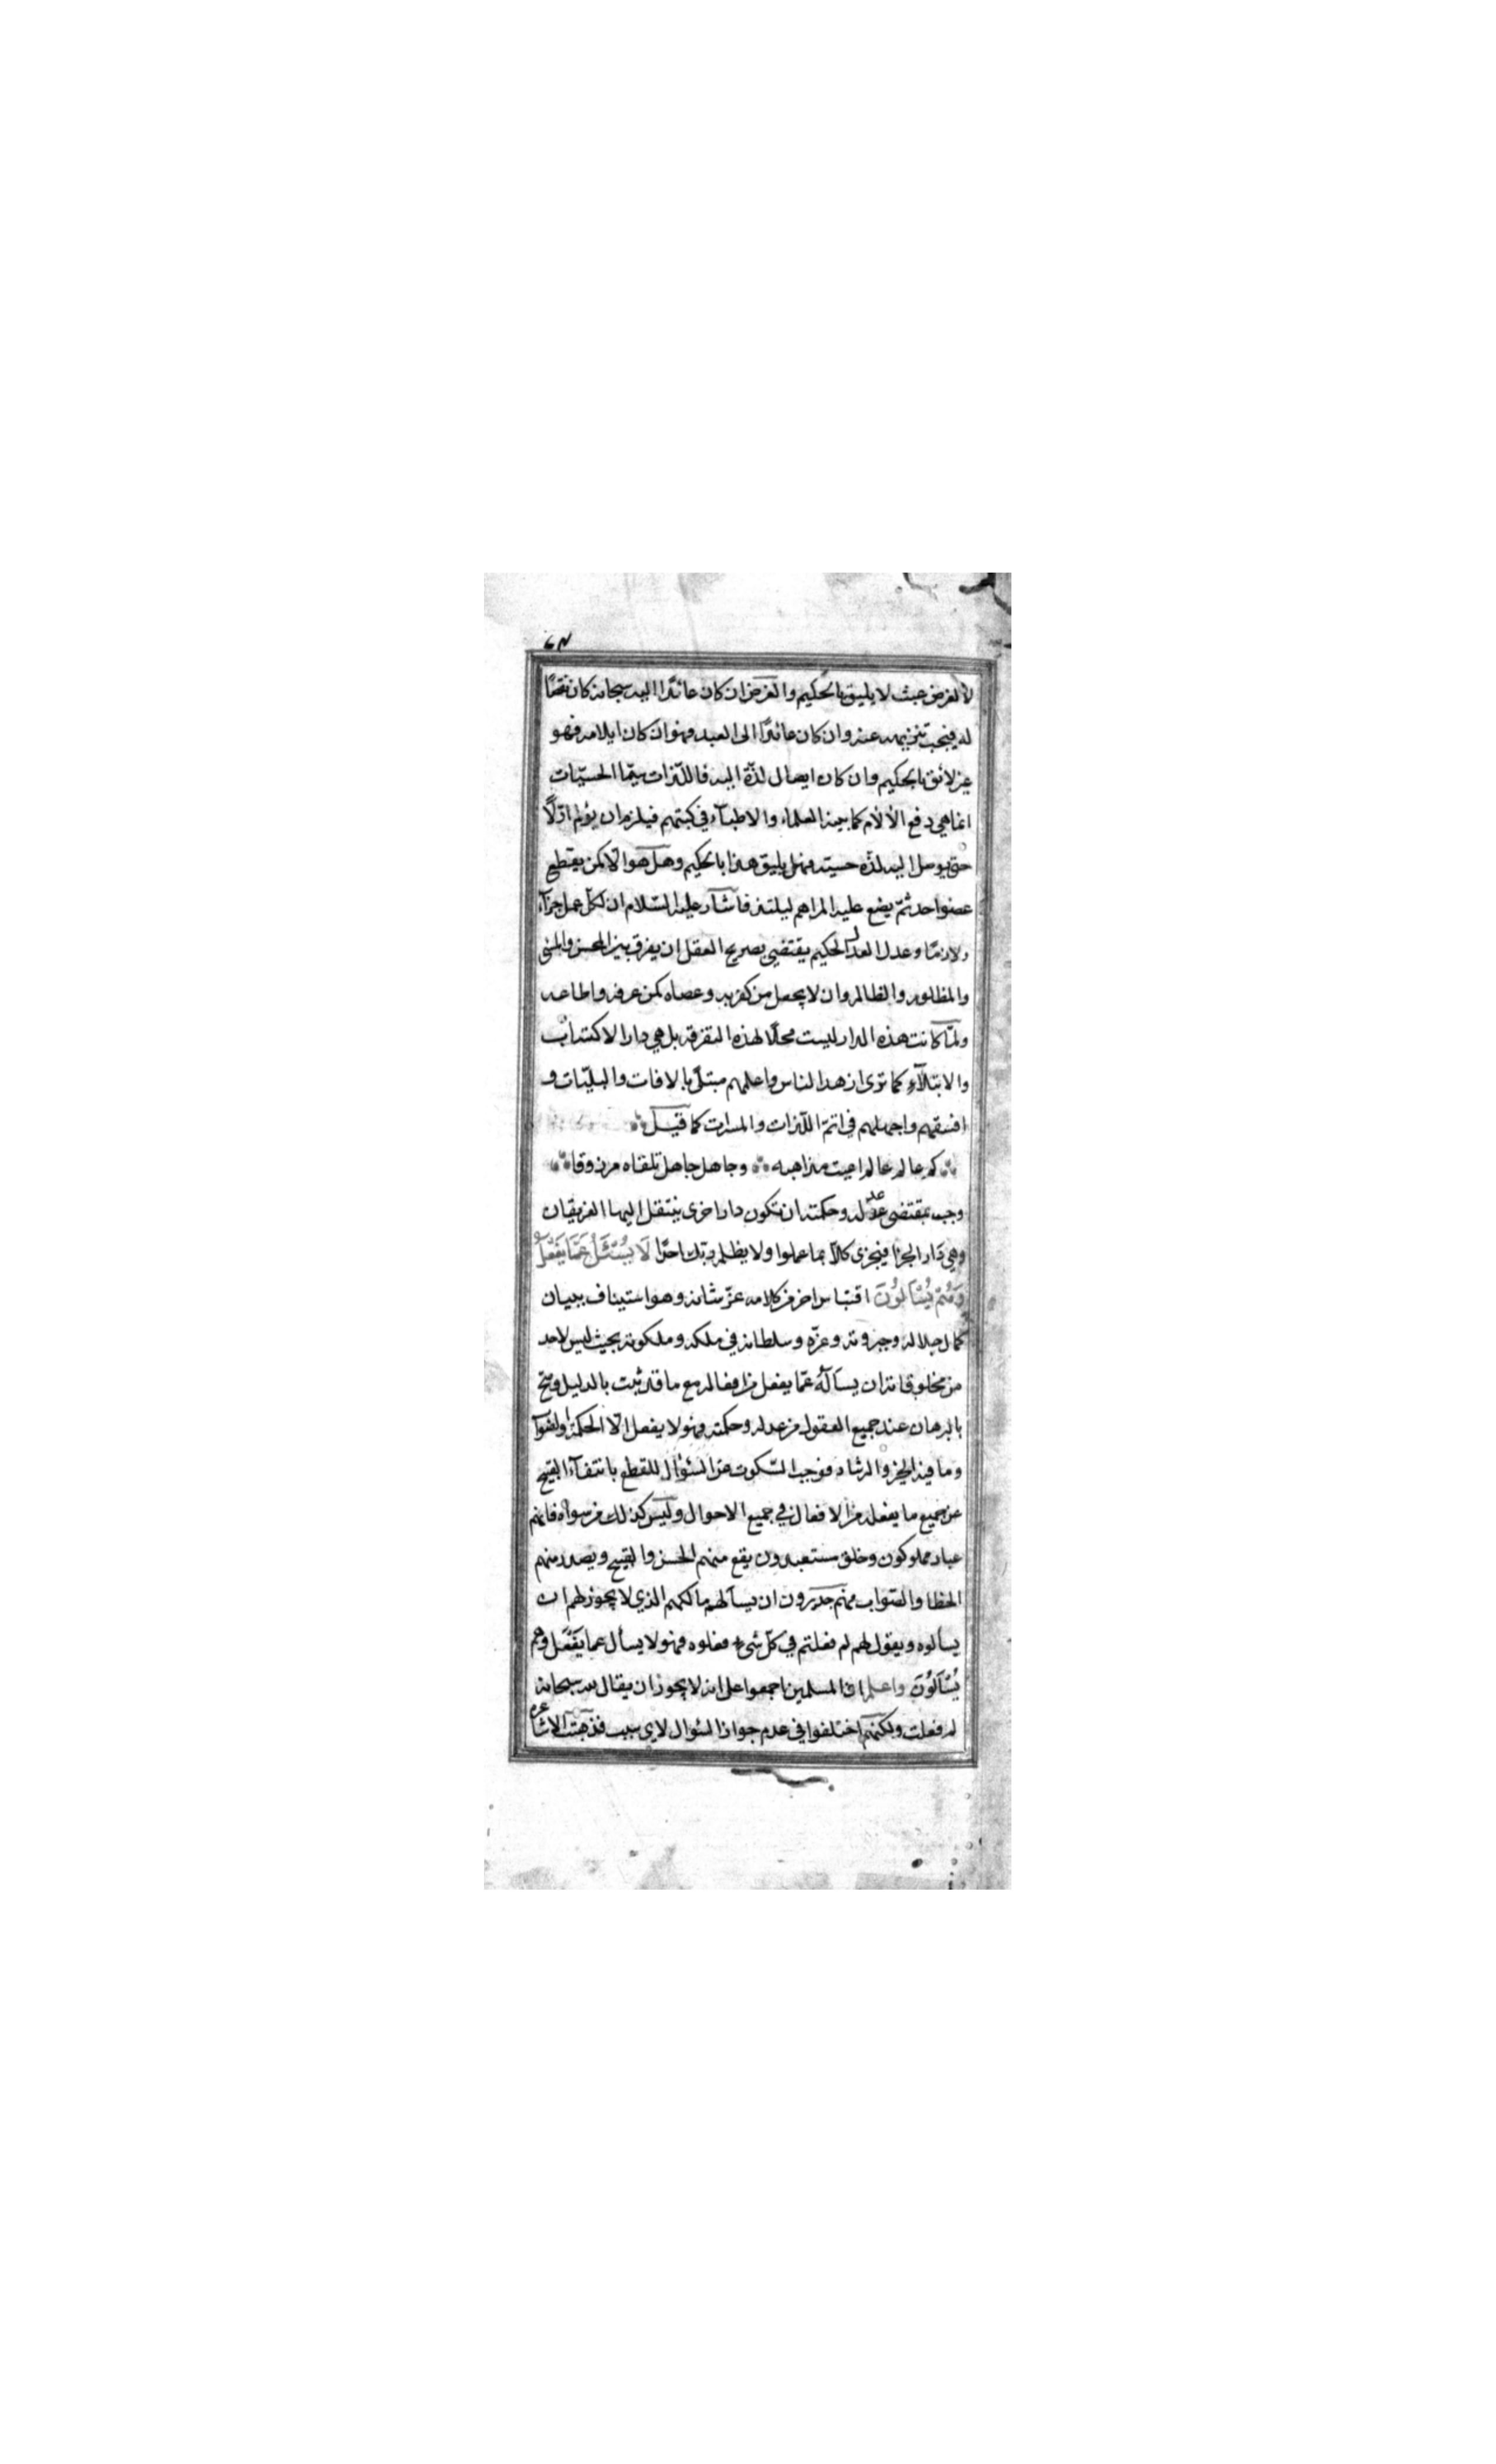 لا لغرض عبث لا يليق بالحكيم والغرض ان كان عائدًا اليه سبحانه كان نقصًا
له فيجب تنزيهه عنه وان كان عائدًا الى العبد فهو ان كان ايلامه فهو
غير لائق بالحكيم وان كان ايصال لذّة اليه فاللّذات سيّما الحسيّات
انما هي دفع الألام كما بينه العلماء والاطبّاء في كتبهم فيلزم ان يؤلم اوّلاً
حتى يوصل اليه لذّه حسيته فهل يليق هذا بالحكيم وهل هو الّا كمن يقطع
عضو احد ثمّ يضع عليه المراهم ليلتذ فاشار عليه السّلام ان لكل عمل جزآء
ولازمًا وعدل العدل الحكيم يقتضي بصريح العقل ان يفرق بين المحسن والمسئ
والمظلوم والظالم وان لا يجعل من كفر به وعصاه كمن عرفه واطاعه
ولمّا كانت هذه الدار ليست محلًا لهذه التفرقة بل هي دار الاكتساب
والابتلآء كما ترى ازهد الناس واعلمهم مبتلّى بالافات والبليّات و
افسقهم واجهلهم في اتمّ اللّذات والمسرات كما قيل
كم عالم عالم اعيت مذاهبه وجاهل جاهل تلقاه مرزوقا
وجب بمقتضى عدله وحكمته ان تكون دار اخرى ينتقل اليها الفريقان
وهي دار الجزا فيجزى كلاًّ بما عملوا ولا يظلم ربّك احدًا لَا يُسْئَلُ عَمَّا يَفْعَلُ
وَهُمْ يُسْأَلُونَ اقتباس اخر من كلامه عزّ شانه وهو استيناف ببيان
كمال جلاله وجبروته وعزّه وسلطانه في ملكه وملكوته بحيث ليس لاحد
من مخلوقاته ان يسأله عمّا يفعل من افعاله مع ما قد ثبت بالدليل وصح
بالبرهان عند جميع العقول من عدله وحكمته فهو لا يفعل الّا الحكمة والصّوآب
وما فيه الخير والرشاد فوجب السّكوت عن السئوال للقطع بانتفآء القبيح
عن جميع ما يفعله من الافعال في جميع الاحوال وليس كذلك من سواه فانهم
عباد مملوكون وخلق مستعبدون يقع منهم الحسن والقبيح ويصدر منهم
الخطا والصّواب فهم جديرون ان يسألهم مالكهم الذي لا يجوز لهم ان
يسألوه ويقول لهم لم فعلتم في كلّ شيء فعلوه فهو لا يسأل عما يفعل وهم
يُسْأَلُونَ واعلم ان المسلمين اجمعوا على انه لا يجوز ان يقال لله سبحانه
لم فعلت ولكنهم اختلفوا في عدم جواز السئوال لاي سبب فذهبت الاشاعره